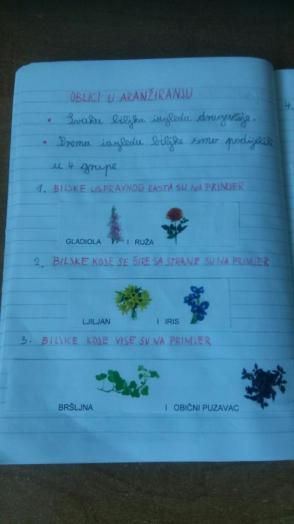 OBLICI U ARANŽIRANJU
• Svaka biljka izgleda drugačije.
• Prema izgledu biljke smo podijelili
u 4 grupe
1. BILJKE USPRAVNOG RASTA SU NA PRIMJER
GLADIOLA I RUŽA
2. BILJKE KOJE SE ŠIRE SA STRANE SU NA PRIMJER
LJILJAN I IRIS
3. BILJKE KOJE VISE SU NA PRIMJER
BRŠLJNA I OBIČNI PUZAVAC
4.